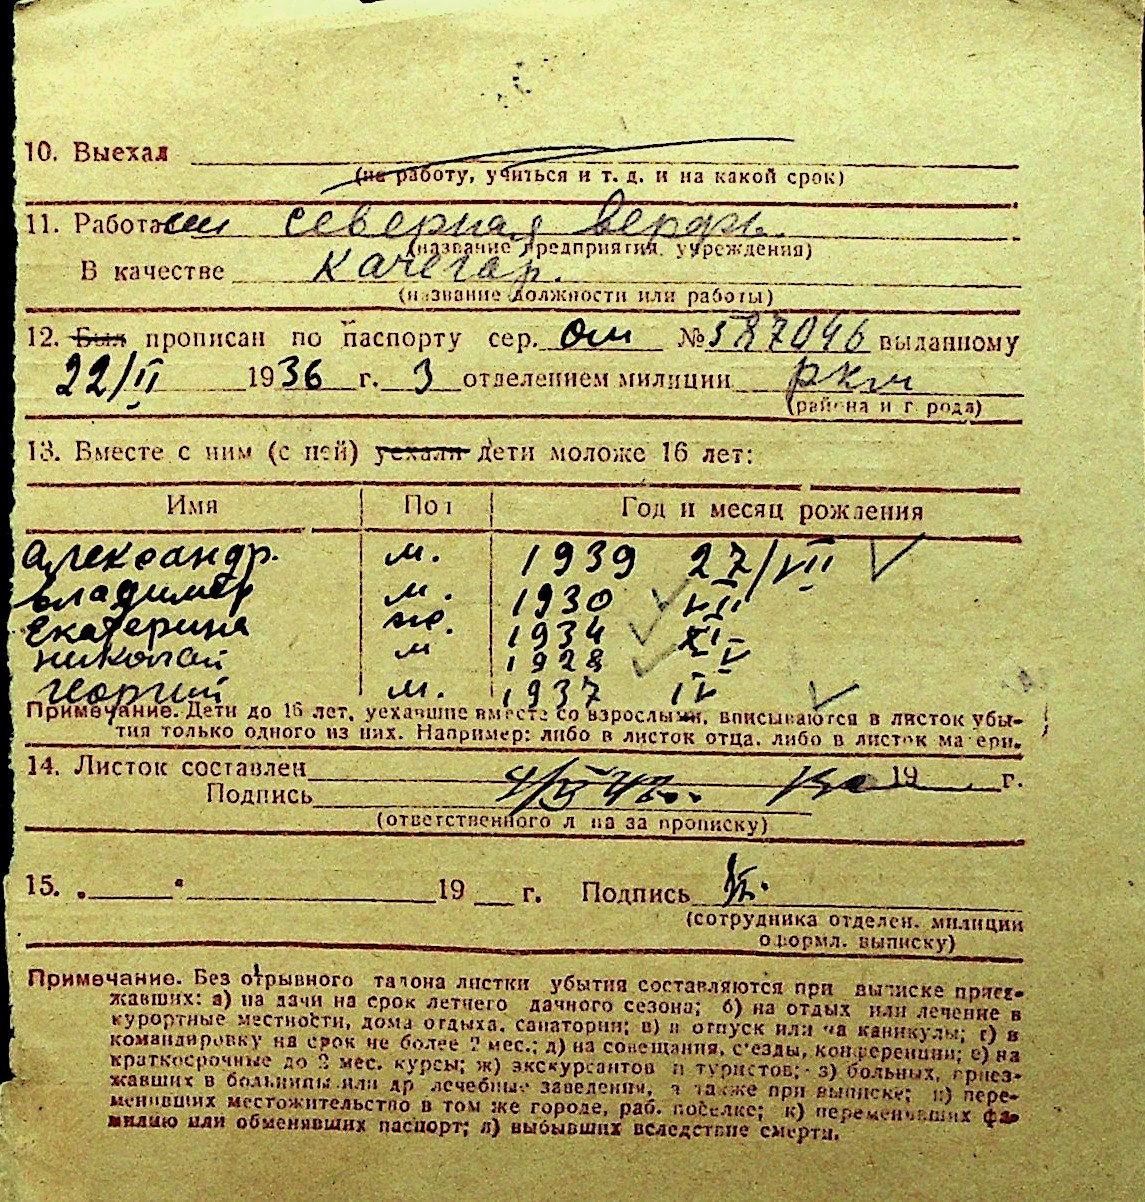 10. Выехал
(на работу, учиться и т. д. и на какой срок)
11. Работа северная верфь.
(название предприятия, учреждения)
В качестве качегар.
(название должности или работы)
12. Был прописан по паспорту сер. ОШ № 587046 выданному
22/II 1936 г. 3 отделением милиции РКМ
(района и города)
13. Вместе с ним (с ней) уехали дети моложе 16 лет:
Имя Пол Год и месяц рождения
Александр. м. 1939 27/VII
Владимер м. 1930 VII
Екатерина ж. 1934 XI
Николай м 1928 V
Георгий м. 1937 IV
Примечание. Дети до 16 лет, уехавшие вместе со взрослыми, вписываются в листок убы-
тия только одного из них. Например: либо в листок отца, либо в листок матери.
14. Листок составлен 19 г.
Подпись
(ответственного лица за прописку)
15. „ “ 19 г. Подпись
(сотрудника отделен. милиции
оформл. выписку)
Примечание. Без отрывного талона листки убытия составляются при выписке приез-
жавших: а) на дачи на срок летнего дачного сезона; б) на отдых или лечение в
курортные местности, дома отдыха, санатории; в) в отпуск или на каникулы; г) в
командировку на срок не более 2 мес.; д) на совещания, съезды, конференции; е) на
краткосрочные до 3 мес. курсы; ж) экскурсантов и туристов; з) больных, приез-
жавших в больницы или др лечебные заведения, а также при выписке; и) пере-
менивших местожительство в том же городе, раб. поселке; к) переменивших фа-
милию или обменявших паспорт; л) выбывших вследствие смерти.